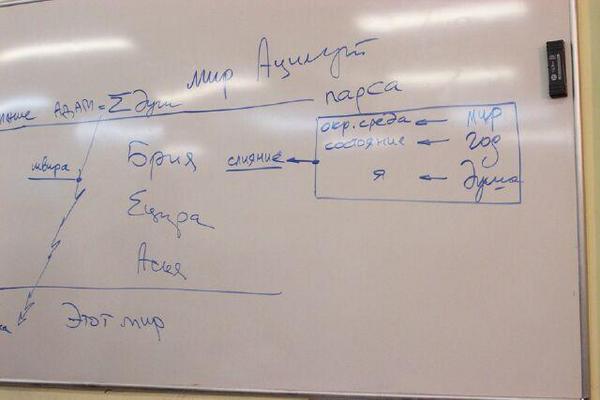 мир Ацилут
АДАМ = Σ душ
парса
окр. среда ← мир
состояние ← год
я ← душа
швира
Брия
слияние
Ецира
Асия
Этот мир